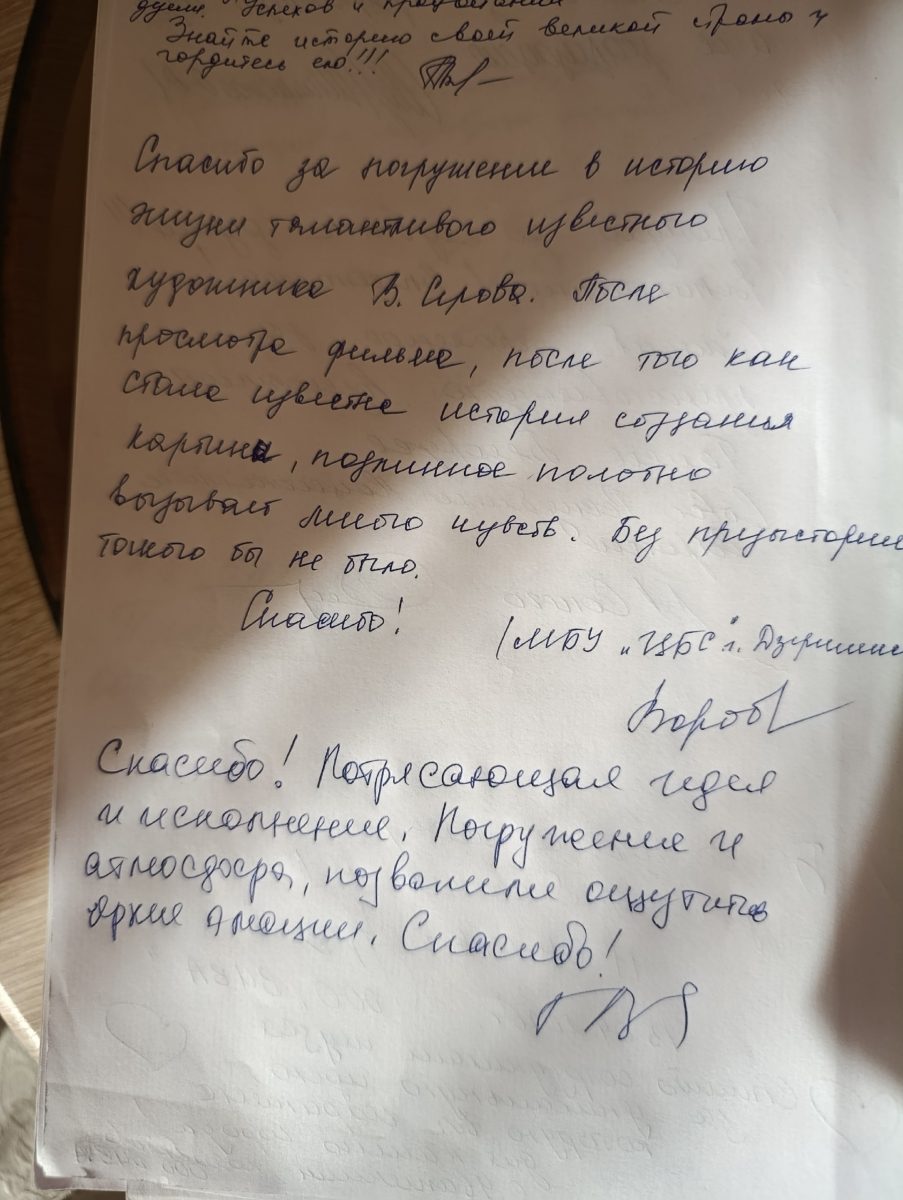 Успехов и процветания
Знайте историю своей великой страны и
гордитесь ею!!!
Спасибо за погружение в историю
жизни талантливого известного
художника В. Серова. После
просмотра фильма, после того как
стала известна история создания
картины, подлинное полотно
вызывает много чувств. Без предыстории
такого бы не было.
Спасибо!
(МБУ "ЦБС" г. Дзержинс
Спасибо! Потрясающая идея
и исполнение. Погружение и
атмосфера, позволили ощутить
яркие эмоции. Спасибо!